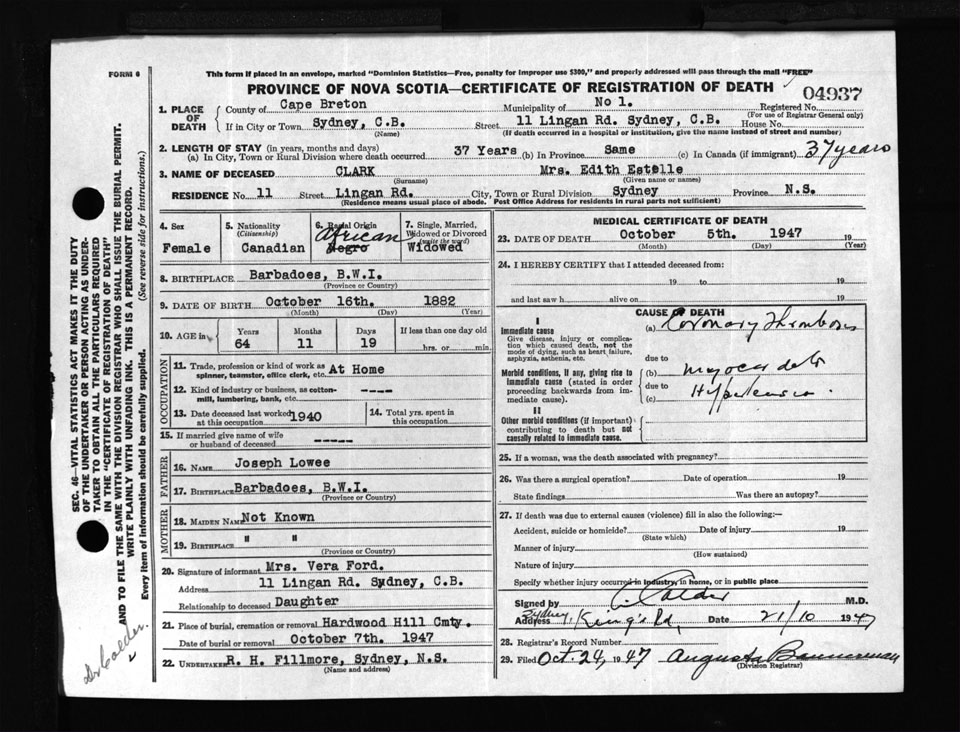 FORM 6
This form if placed in an envelope, marked "Dominion Statistics—Free, penalty for improper use $300," and properly addressed will pass through the mail "FREE"
PROVINCE OF NOVA SCOTIA—CERTIFICATE OF REGISTRATION OF DEATH
04937
1. PLACE OF DEATH
County of Cape Breton Municipality of No 1. Registered No.
(For use of Registrar General only)
If in City or Town Sydney, C.B. Street 11 Lingan Rd. Sydney, C.B. House No.
(Name) (If death occurred in a hospital or institution, give the name instead of street and number)
2. LENGTH OF STAY (in years, months and days)
(a) In City, Town or Rural Division where death occurred 37 Years (b) In Province Same (c) In Canada (if immigrant) 37 years
3. NAME OF DECEASED CLARK Mrs. Edith Estelle
(Surname) (Given name or names)
RESIDENCE No. 11 Street Lingan Rd. City, Town or Rural Division Sydney Province N.S.
(Residence means usual place of abode. Post Office Address for residents in rural parts not sufficient)
4. Sex
Female
5. Nationality
(Citizenship)
Canadian
6. Racial Origin
African
Negro
7. Single, Married, Widowed or Divorced
(write the word)
Widowed
8. BIRTHPLACE Barbadoes, B.W.I.
(Province or Country)
9. DATE OF BIRTH October 16th. 1882
(Month) (Day) (Year)
10. AGE in
Years Months Days If less than one day old
64 11 19 hrs. or min.
OCCUPATION
11. Trade, profession or kind of work as spinner, teamster, office clerk, etc. At Home
12. Kind of industry or business, as cotton-mill, lumbering, bank, etc. ----
13. Date deceased last worked at this occupation 1940
14. Total yrs. spent in this occupation
15. If married give name of wife or husband of deceased -----
FATHER
16. NAME Joseph Lowee
17. BIRTHPLACE Barbadoes, B.W.I.
(Province or Country)
MOTHER
18. MAIDEN NAME Not Known
19. BIRTHPLACE " "
(Province or Country)
20. Signature of informant Mrs. Vera Ford.
Address 11 Lingan Rd. Sydney, C.B.
Relationship to deceased Daughter
21. Place of burial, cremation or removal Hardwood Hill Cmty.
Date of burial or removal October 7th. 1947
22. UNDERTAKER R. H. Fillmore, Sydney, N.S.
(Name and address)
MEDICAL CERTIFICATE OF DEATH
23. DATE OF DEATH October 5th. 1947 19
(Month) (Day) (Year)
24. I HEREBY CERTIFY that I attended deceased from:
19 to 19
and last saw h alive on 19
CAUSE OF DEATH
I
Immediate cause
Give disease, injury or complication which caused death, not the mode of dying, such as heart failure, asphyxia, asthenia, etc.
(a) Coronary Thrombosis
due to
Morbid conditions, if any, giving rise to immediate cause (stated in order proceeding backwards from immediate cause).
(b)
due to
(c)
II
Other morbid conditions (if important) contributing to death but not causally related to immediate cause.
25. If a woman, was the death associated with pregnancy?
26. Was there a surgical operation? Date of operation 19
State findings Was there an autopsy?
27. If death was due to external causes (violence) fill in also the following:—
Accident, suicide or homicide? Date of injury 19
(State which)
Manner of injury
(How sustained)
Nature of injury
Specify whether injury occurred in industry, in home, or in public place
Signed by Calder M.D.
Address Sydney, King's Rd, Date 21/10 1947
28. Registrar's Record Number
29. Filed Oct. 24, 1947 Augusta Bannerman
(Division Registrar)
SEC. 46—VITAL STATISTICS ACT MAKES IT THE DUTY
OF THE UNDERTAKER OR PERSON ACTING AS UNDER-
TAKER TO OBTAIN ALL THE PARTICULARS REQUIRED
IN THE "CERTIFICATE OF REGISTRATION OF DEATH"
AND TO FILE THE SAME WITH THE DIVISION REGISTRAR WHO SHALL ISSUE THE BURIAL PERMIT.
WRITE PLAINLY WITH UNFADING INK. THIS IS A PERMANENT RECORD.
Every item of information should be carefully supplied. (See reverse side for instructions.)
Dr Calder.